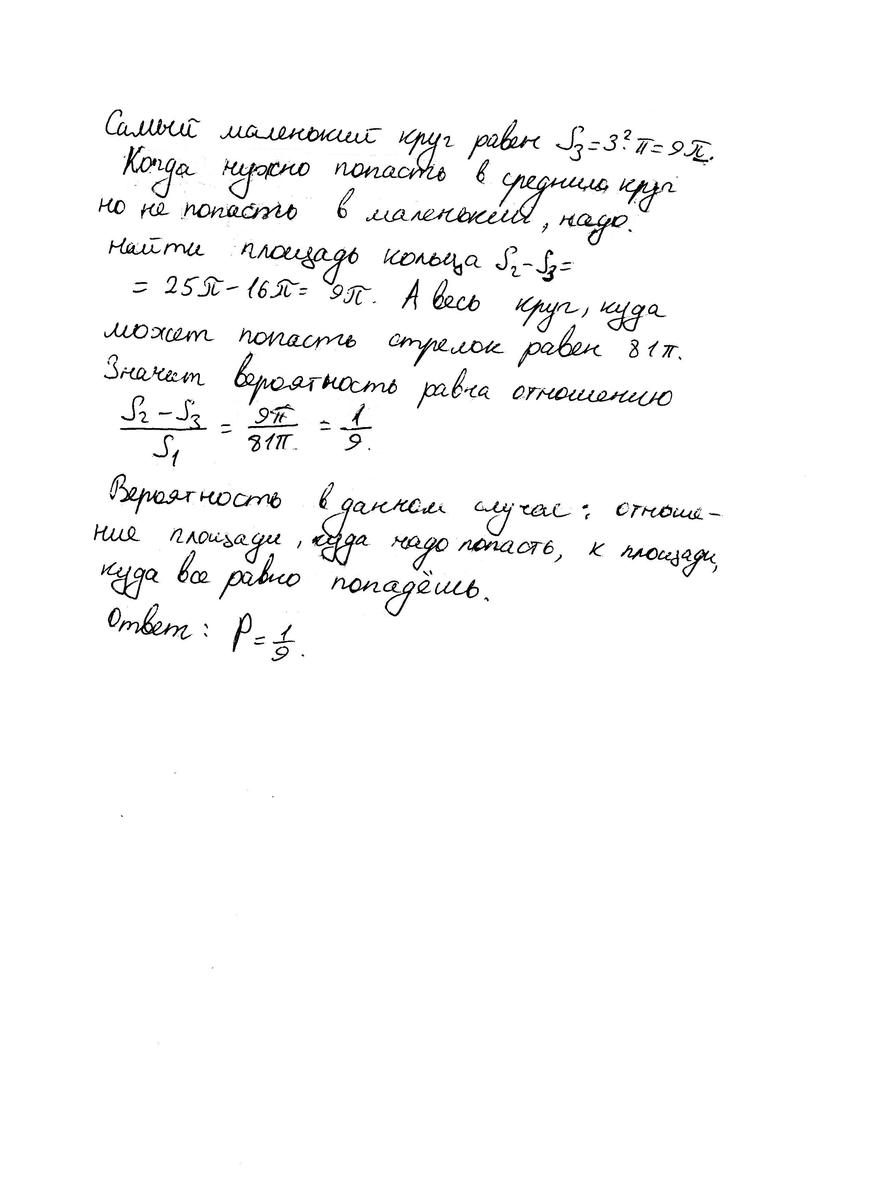 Самый маленький круг равен S₃=3²π=9π.
Когда нужно попасть в средний круг
но не попасть в маленький, надо.
найти площадь кольца S₂-S₃=
= 25π-16π= 9π. А весь круг, куда
может попасть стрелок равен 81π.
Значит вероятность равна отношению
(S₂-S₃)/S₁ = 9π/81π. = 1/9.
Вероятность в данном случае: отноше-
ние площади, куда надо попасть, к площади,
куда все равно попадёшь.
Ответ: P=1/9.